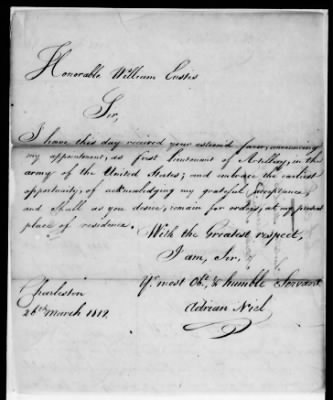 Honorable William Eustis
Sir,
I have this day received your esteem'd favor, announcing
my appointment, as first lieutenant of Artillery, in the
army of the United States; and embrace the earliest
opportunity, of acknowledging my grateful Acceptance,
and Shall as you desire, remain for orders, at my present
place of residence.
With the Greatest respect,
I am, Sir,
Yr. most Obt. & humble Servant
Adrian Niel
Charleston
26th March 1812